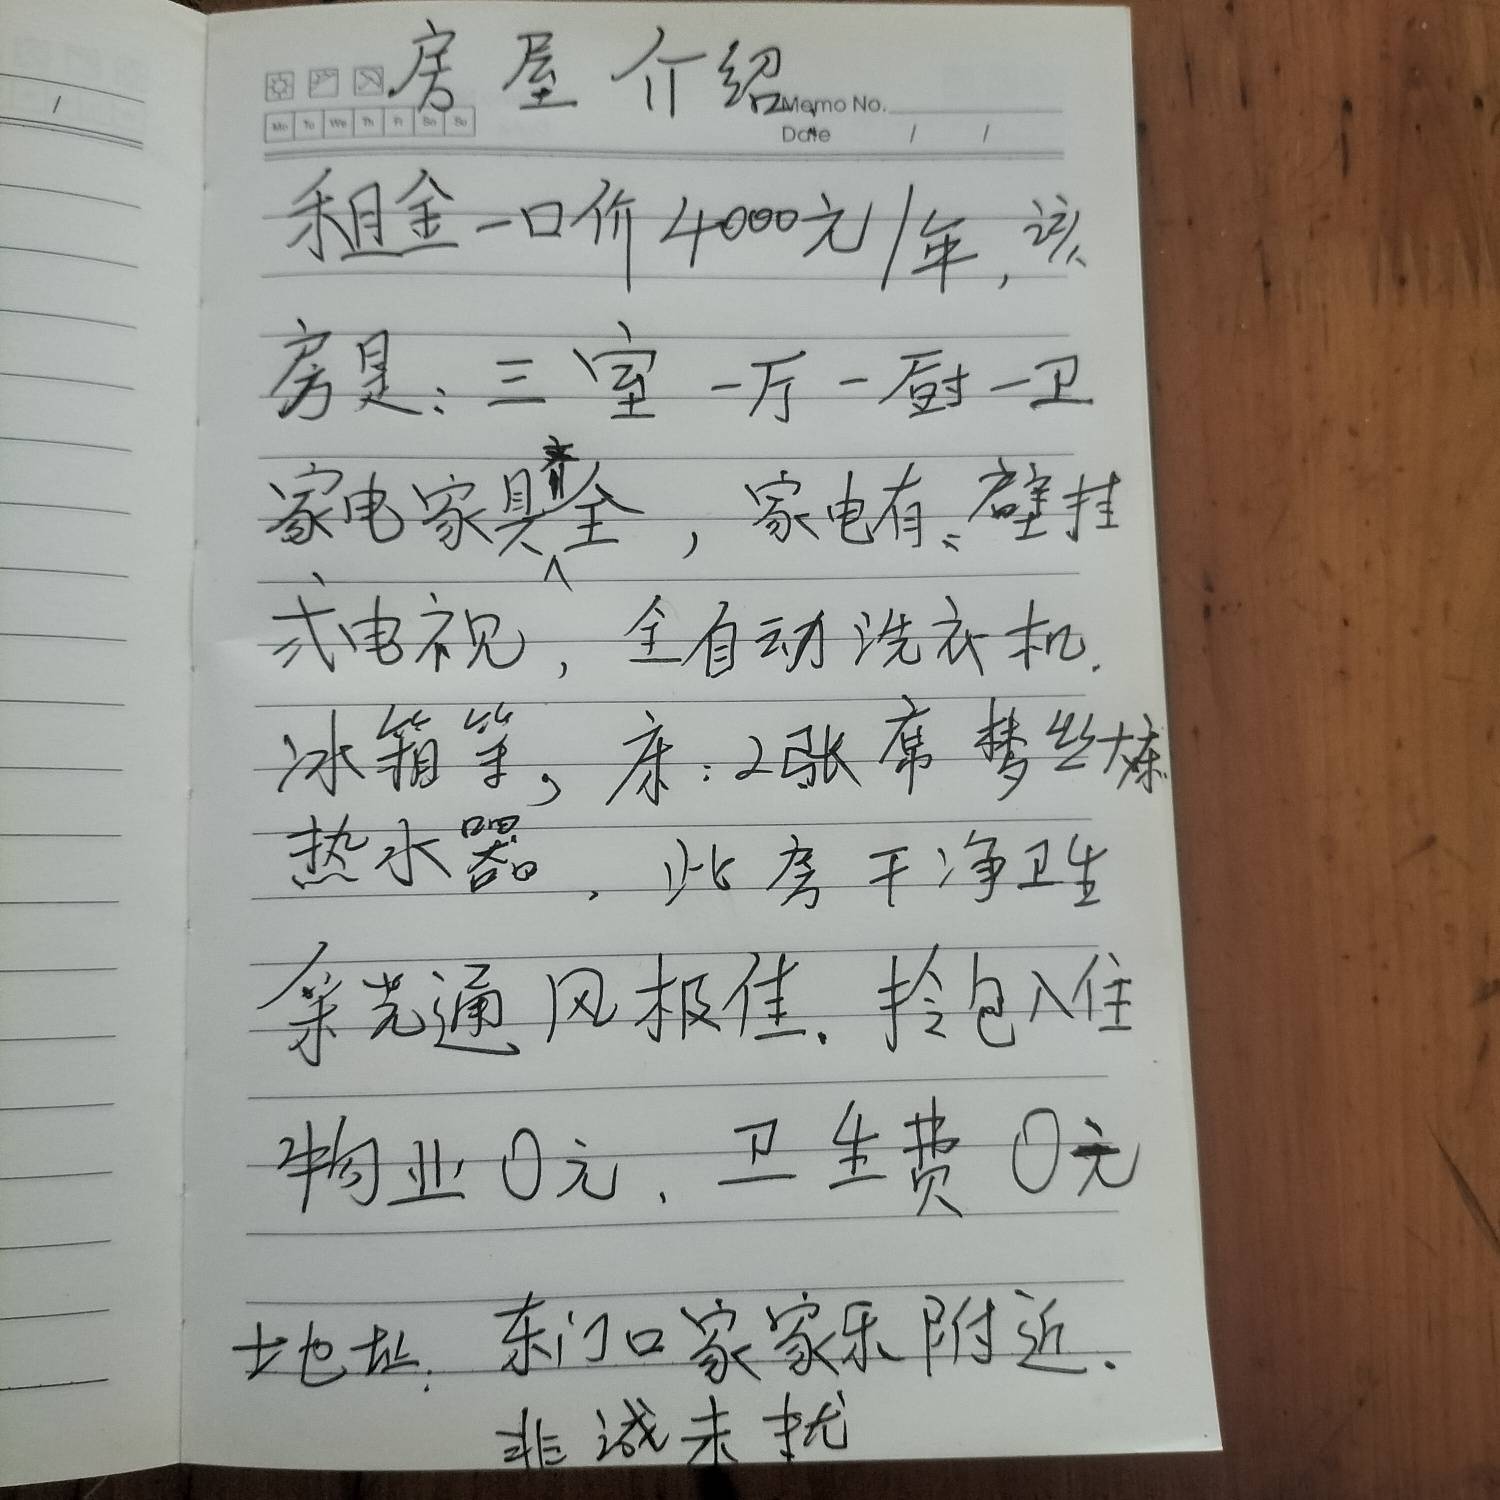 房屋介绍
Memo No.
Mo Tu We Th Fr Sa Su
Date / /
租金一口价4000元/年,该
房是:三室一厅一厨一卫
家电家具齐全,家电有:壁挂
式电视,全自动洗衣机.
冰箱等,床:2张席梦丝大床
热水器,此房干净卫生
采光通风极佳.拎包入住
物业0元.卫生费0元
地址:东门口家家乐附近.
非诚未扰